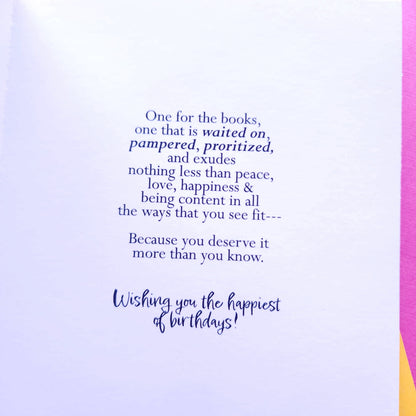 One for the books,
one that is waited on,
pampered, proritized,
and exudes
nothing less than peace,
love, happiness &
being content in all
the ways that you see fit---
Because you deserve it
more than you know.
Wishing you the happiest
of birthdays!